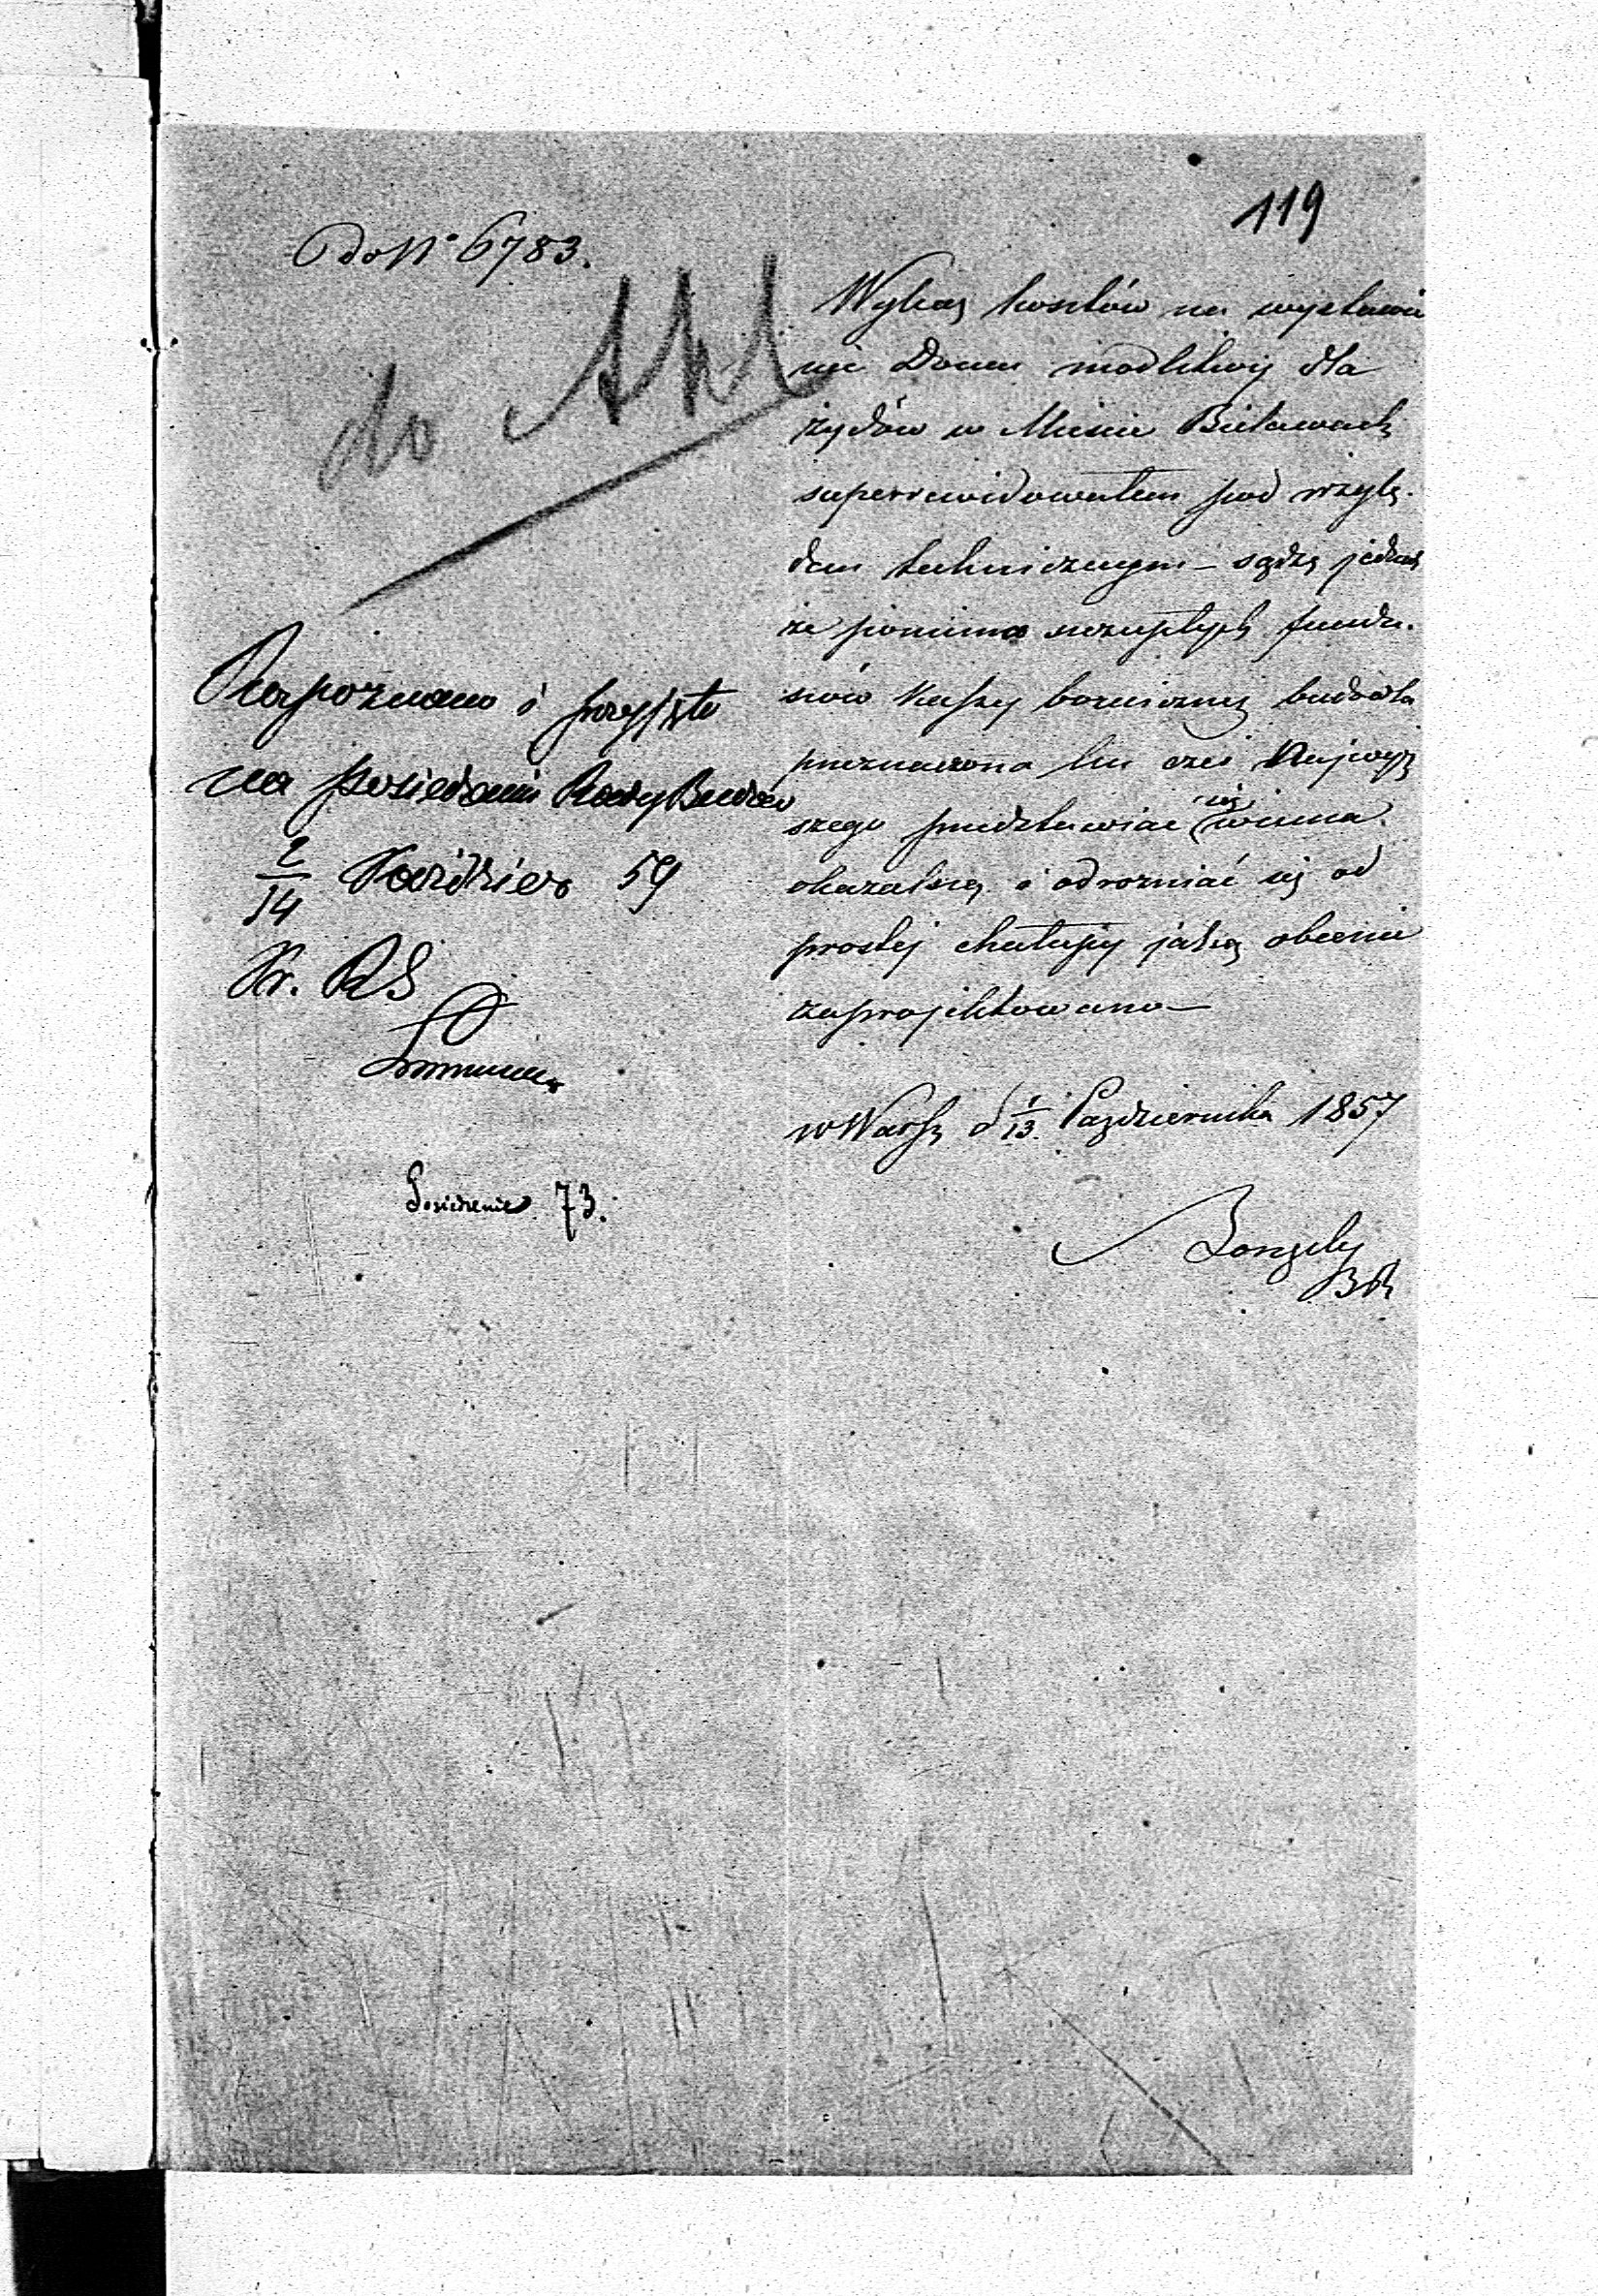 119
Do N° 6783.
do Akt
Wykaz kosztów na wystawie
nie Domu modlitwy dla
żydów w Mieście Bielawach
superrewidowałem pod wzglę.
dem technicznym – sądzę jednak
że pomimo szczupłych fundu.
szów Kassy bożniczej budowla
przeznaczona ku czci Najwyż
szego przedstawiać się winna.
okazalszą i odrozniać się od
prostej chałupy jaką obecnie
zaprojektowano –
w Warsz d 1/13. Października 1857
BR
Rozpoznano i przyjęto
na posiedzeniu Rady Budow
2/14 Paździer 57
Pr. RS
Posiedzenie 73.